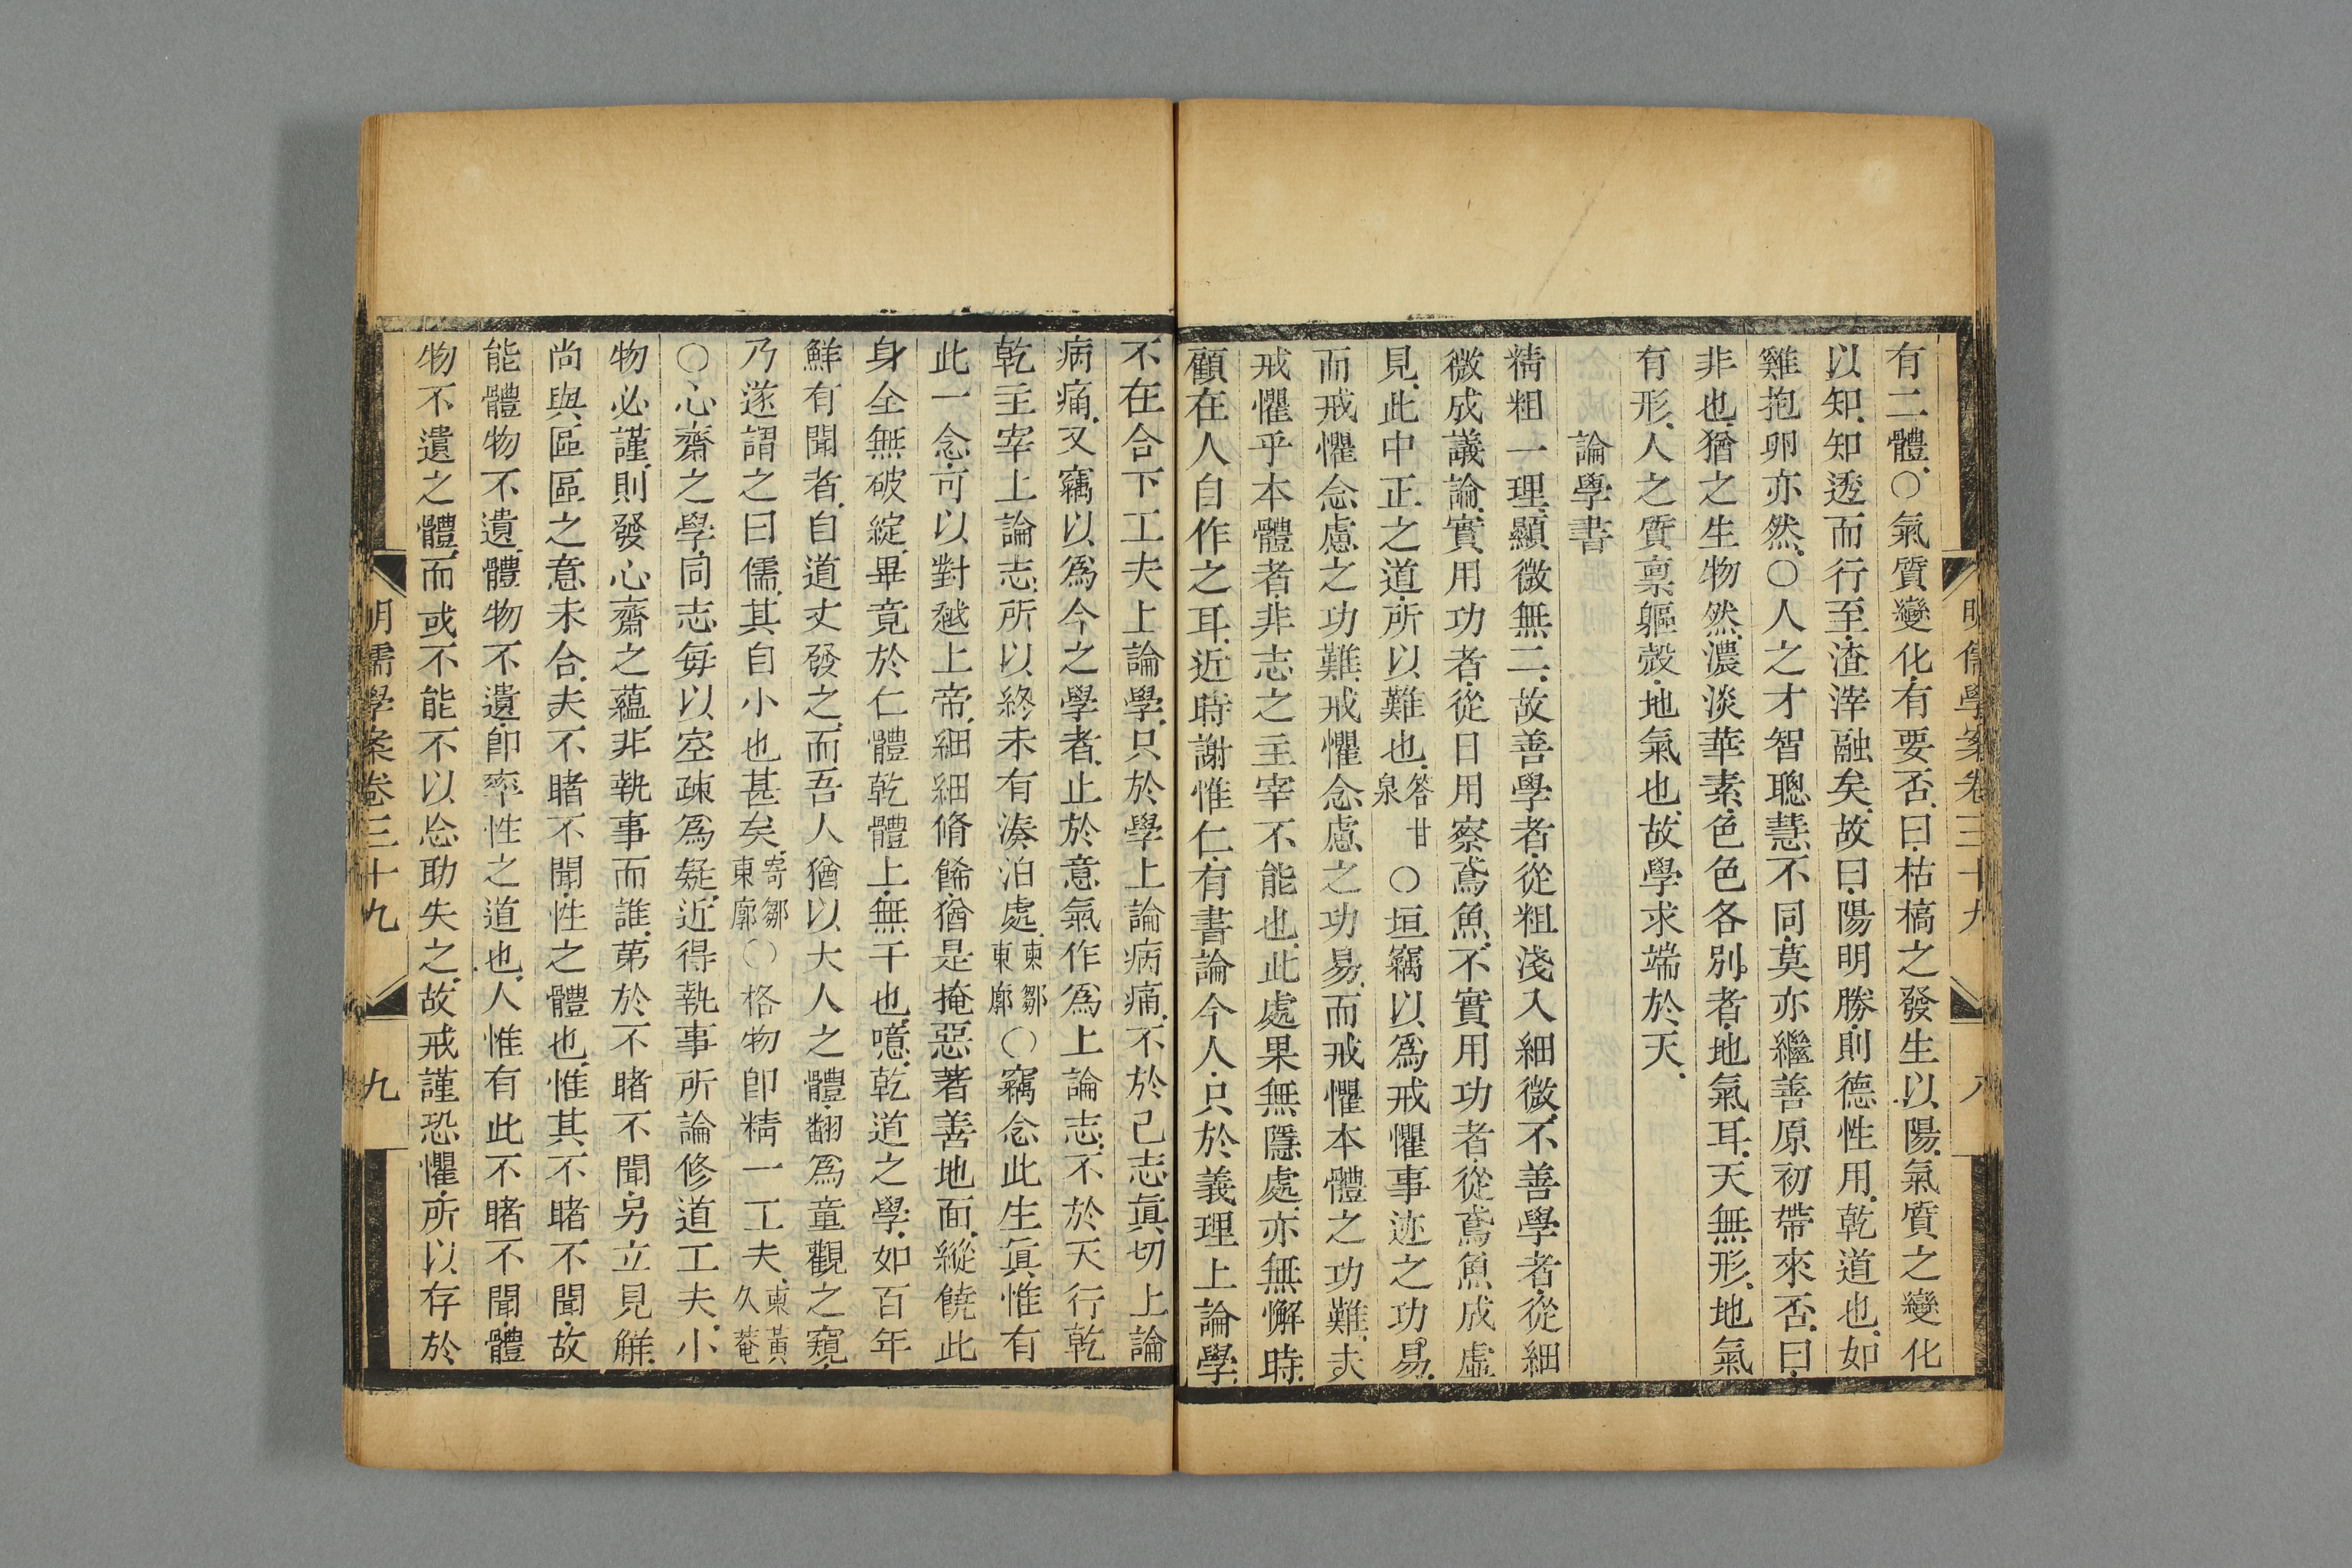 明儒學案卷三十九 八
有二體○氣質變化有要否曰枯槁之發生以陽氣質之變化
以知知透而行至渣滓融矣故曰陽明勝則德性用乾道也如
雞抱卵亦然○人之才智聰慧不同莫亦繼善原初帶來否曰
非也猶之生物然濃淡華素色色各別者地氣耳天無形地氣
有形人之質稟軀殼地氣也故學求端於天
論學書
精粗一理顯微無二故善學者從粗淺入細微不善學者從細
微成議論實用功者從日用察鳶魚不實用功者從鳶魚成虛
見此中正之道所以難也答甘泉○垣竊以爲戒懼事迹之功易
而戒懼念慮之功難戒懼念慮之功易而戒懼本體之功難夫
戒懼乎本體者非志之主宰不能也此處果無隱處亦無懈時
顧在人自作之耳近時謝惟仁有書論今人只於義理上論學
不在合下工夫上論學只於學上論病痛不於己志眞切上論
病痛又竊以爲今之學者止於意氣作爲上論志不於天行乾
乾主宰上論志所以終未有湊泊處柬鄒東廓○竊念此生眞惟有
此一念可以對越上帝細細脩餙猶是掩惡著善地面縱饒此
身全無破綻畢竟於仁體乾體上無干也噫乾道之學如百年
鮮有聞者自道丈發之而吾人猶以大人之體翻爲童觀之窺
乃遂謂之曰儒其自小也甚矣寄鄒東廓○格物卽精一工夫柬黃久菴
○心齋之學同志每以空疎爲疑近得執事所論修道工夫小
物必謹則發心齋之蘊非執事而誰第於不睹不聞另立見觧
尚與區區之意未合夫不睹不聞性之體也惟其不睹不聞故
能體物不遺體物不遺卽率性之道也人惟有此不睹不聞體
物不遺之體而或不能不以忩助失之故戒謹恐懼所以存於
明儒學案卷三十九 九